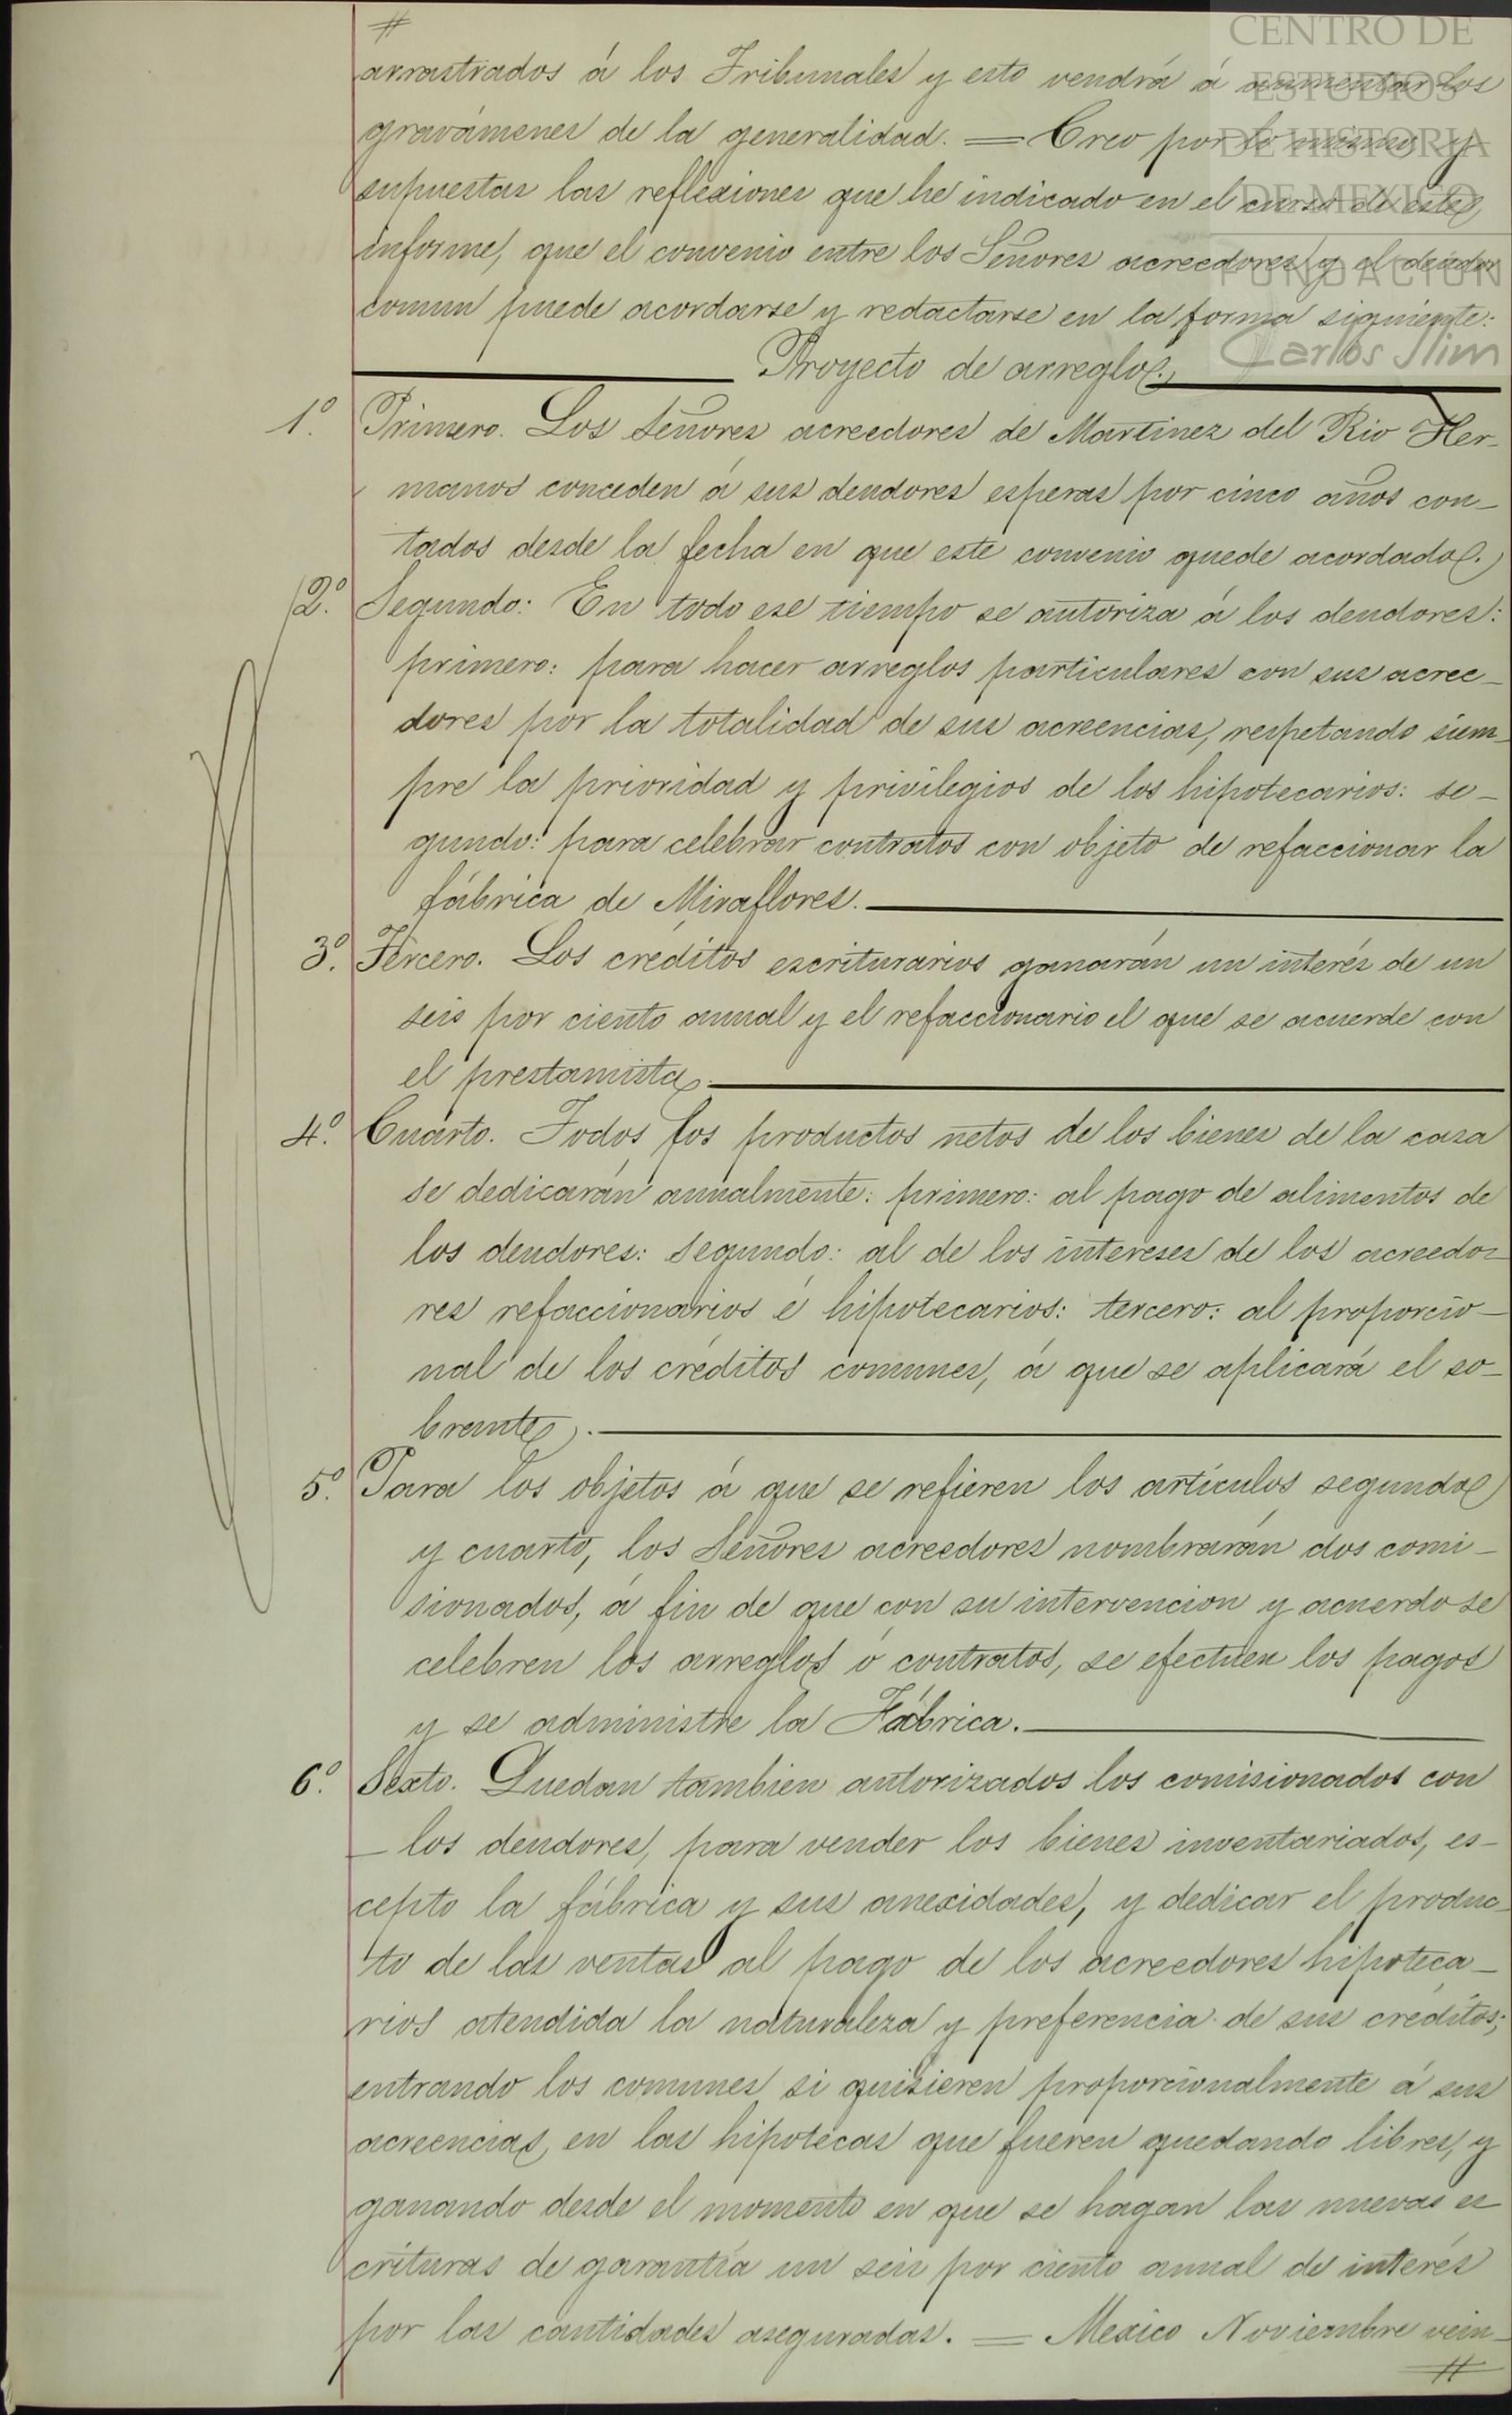 #
CENTRO DE
ESTUDIOS
DE HISTORIA
DE MEXICO
FUNDACIÓN
Carlos Slim
arrastrados á los Tribunales y esto vendrá á aumentar los
gravámenes de la generalidad. = Creo por lo mismo y
supuestas las reflexiones que he indicado en el curso de este
informe, que el convenio entre los Señores acreedores y el deudor
comun puede acordarse y redactarse en la forma siguiente:
Proyecto de arreglo.
1º. Primero. Los Señores acreedores de Martinez del Rio Her-
manos conceden á sus deudores esperas por cinco años con-
tados desde la fecha en que este convenio quede acordado.
2º. Segundo: En todo ese tiempo se autoriza á los deudores:
primero: para hacer arreglos particulares con sus acree-
dores por la totalidad de sus acreencias, respetando siem-
pre la prioridad y privilegios de los hipotecarios: se-
gundo: para celebrar contratos con objeto de refaccionar la
fábrica de Miraflores.
3º. Tercero. Los créditos escriturarios ganarán un interés de un
seis por ciento anual y el refaccionario el que se acuerde con
el prestamista.
4º. Cuarto. Todos los productos netos de los bienes de la casa
se dedicarán anualmente: primero: al pago de alimentos de
los deudores: segundo: al de los intereses de los acreedo-
res refaccionarios é hipotecarios: tercero: al proporcio-
nal de los créditos comunes, á que se aplicará el so-
brante.
5º. Para los objetos á que se refieren los artículos segundo
y cuarto, los Señores acreedores nombrarán dos comi-
sionados, á fin de que con su intervencion y acuerdo se
celebren los arreglos ó contratos, se efectúen los pagos
y se administre la Fábrica.
6º. Sexto. Quedan tambien autorizados los comisionados con
los deudores, para vender los bienes inventariados, es-
cepto la fábrica y sus anexidades, y dedicar el produc-
to de las ventas al pago de los acreedores hipoteca-
rios atendida la naturaleza y preferencia de sus créditos;
entrando los comunes si quisieren proporcionalmente á sus
acreencias, en las hipotecas que fueren quedando libres, y
ganando desde el momento en que se hagan las nuevas es
crituras de garantía un seis por ciento anual de interés
por las cantidades aseguradas. = Mexico Noviembre vein-
#